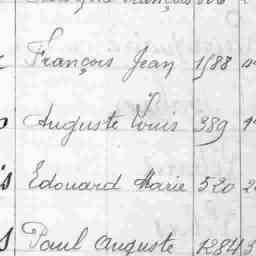 François Jean 1588
Auguste Louis 389
s Edouard Marie 520
s Paul Auguste 1284